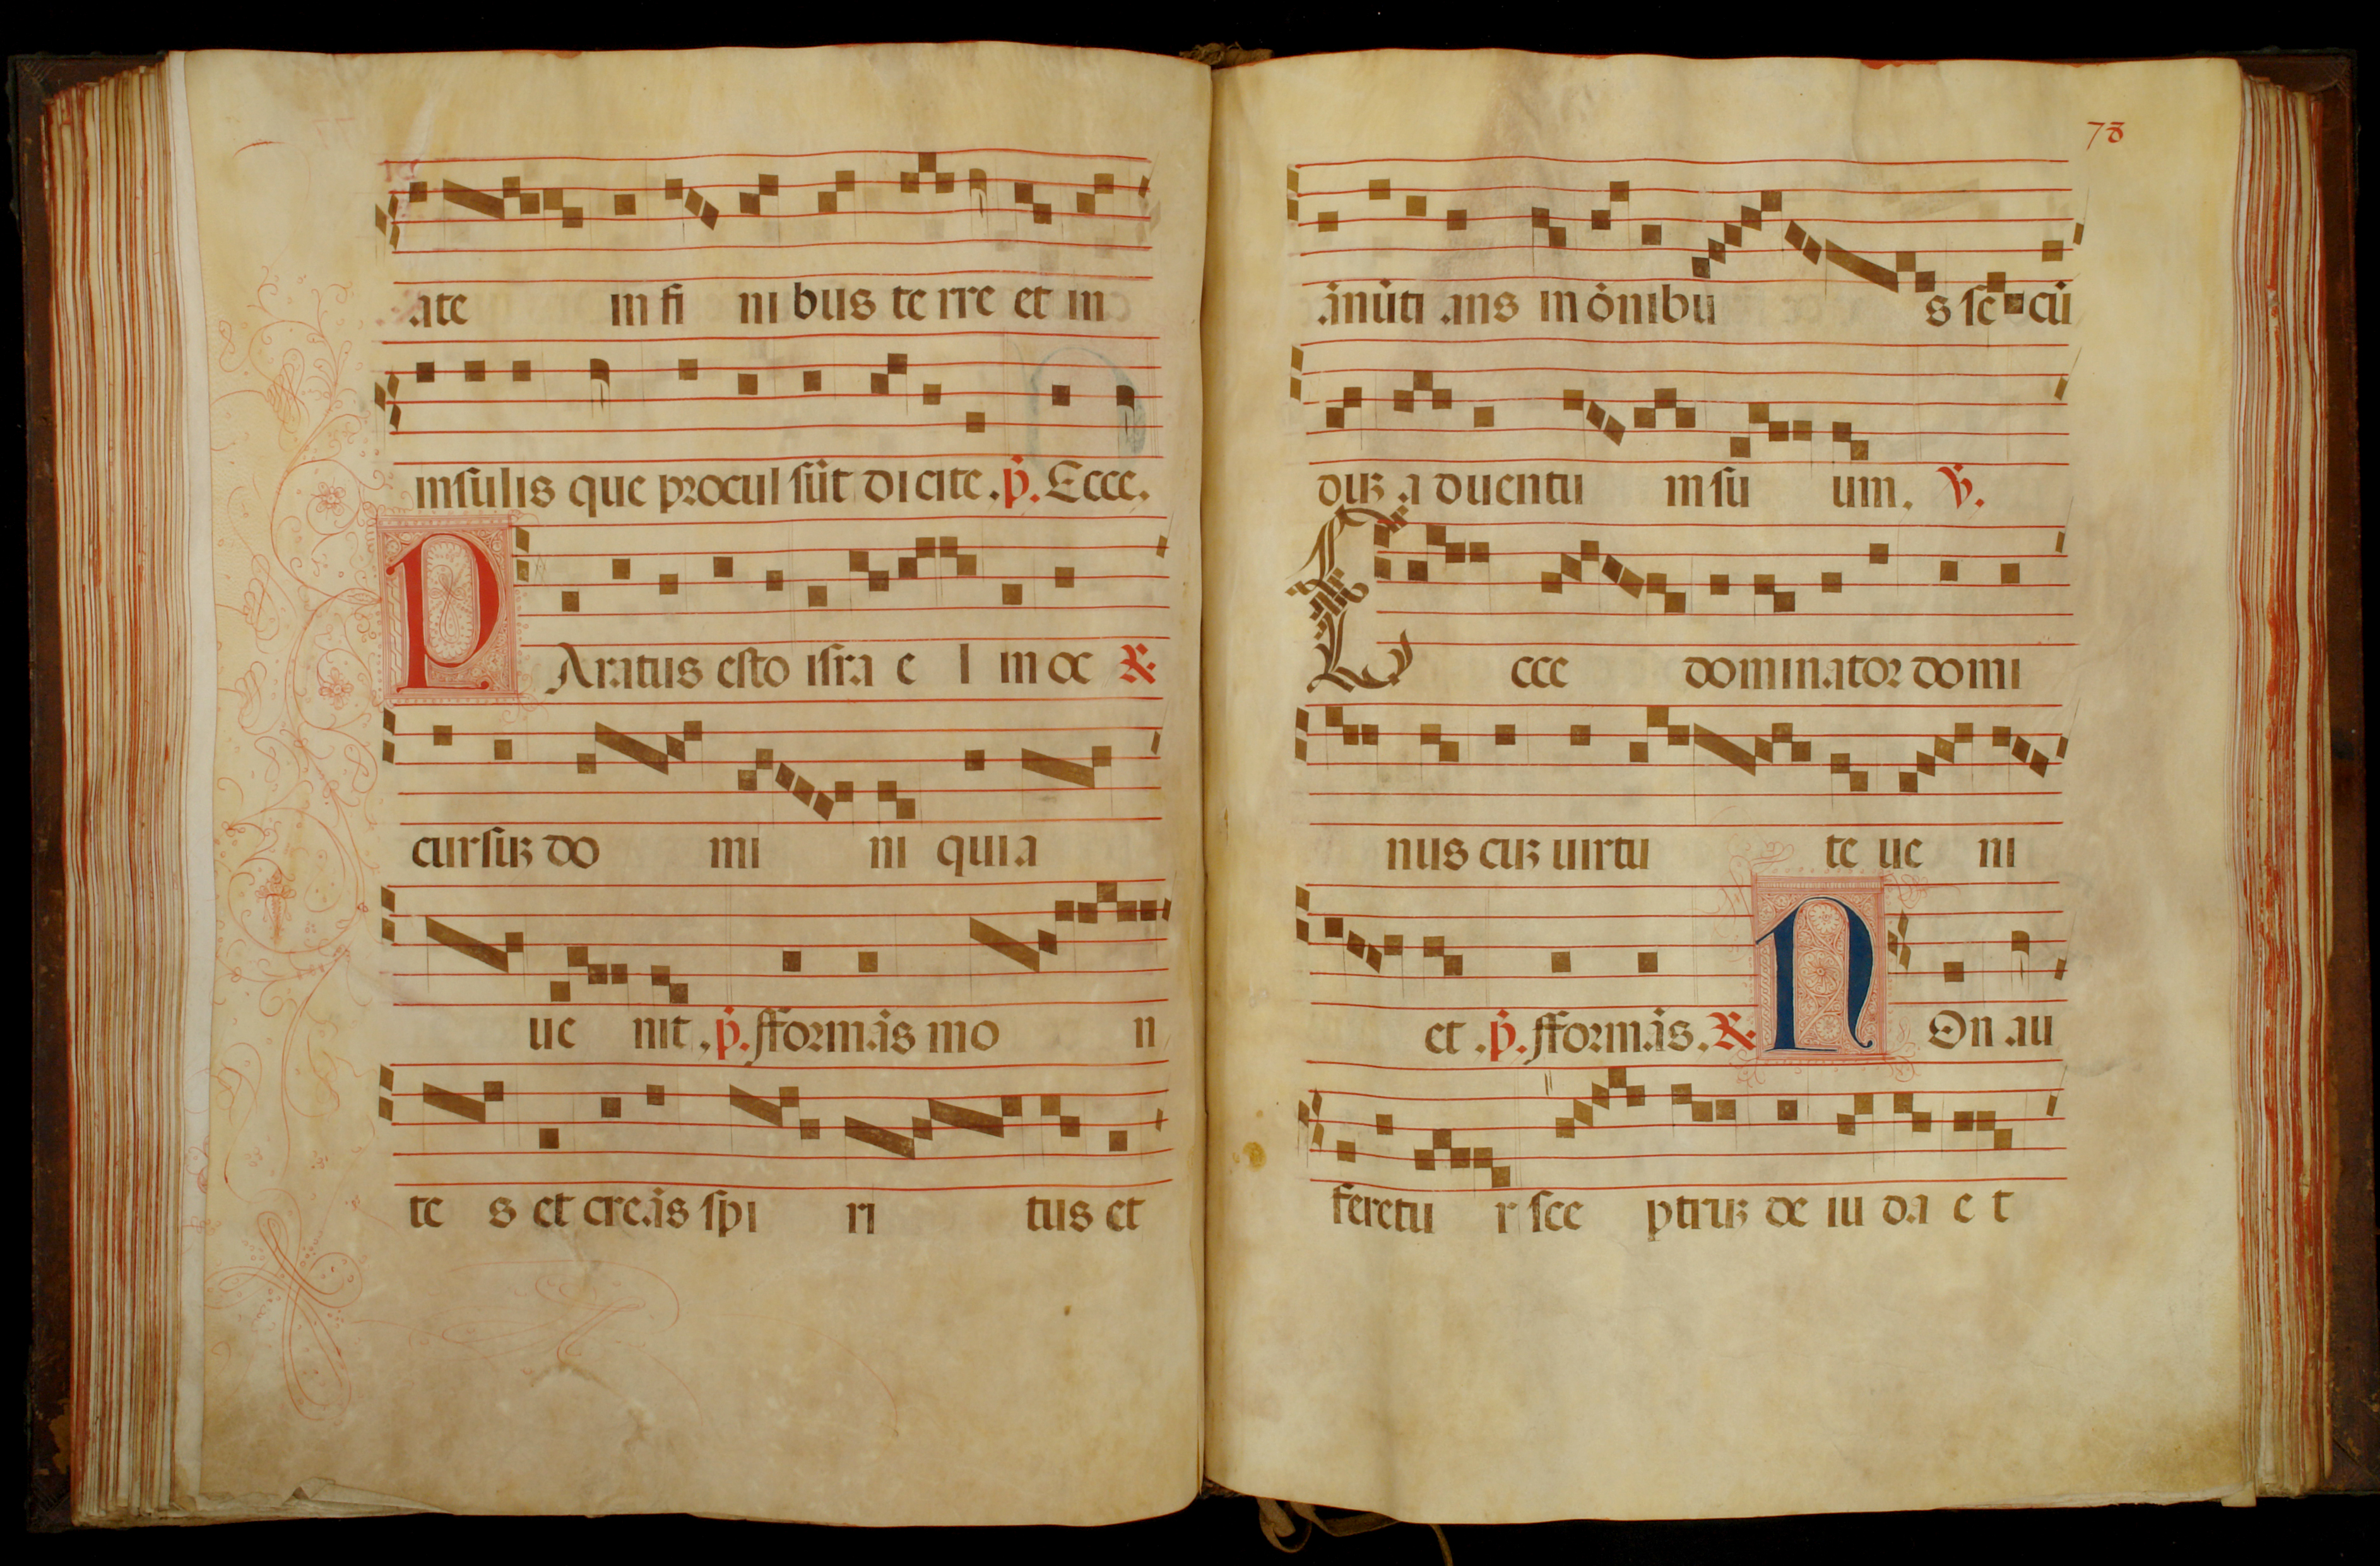 ate in fi nibus terre et in
insulis que procul sūt dicite. p̄. Ecce.
PAratus esto isra e l in oc ℟
cursuꝫ do mi ni quia
ue nit. p̄. fformās mo n
te s et creās spi ri tus et
78
ānūti ans in ōnibu s se cū
duꝫ aduentu m su um. ℣.
Ecce dominator domi
nus cuꝫ uirtu te ue ni
et. p̄. fformās. ℟ NOn au
feretu r sce ptruꝫ de iu da e t